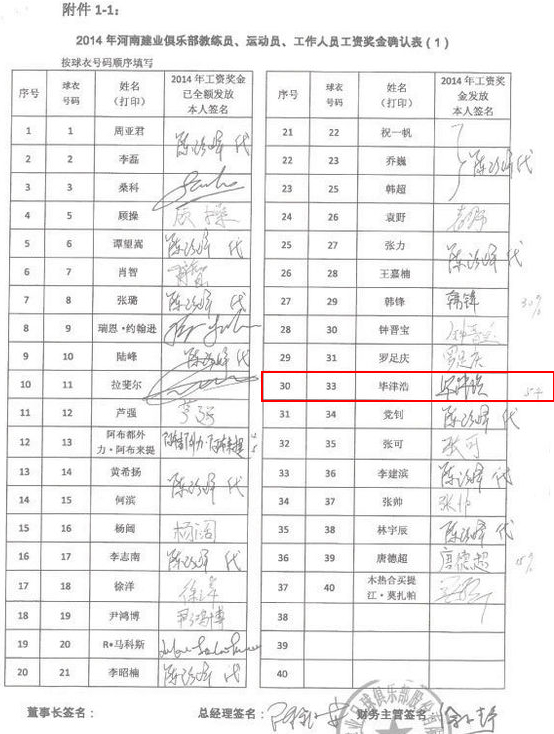 附件 1-1：
2014 年河南建业俱乐部教练员、运动员、工作人员工资奖金确认表（1）
按球衣号码顺序填写
序号 球衣号码 姓名（打印） 2014 年工资奖金已全额发放本人签名
1 1 周亚君 陈淦峰 代
2 2 李磊
3 3 桑科
4 5 顾操 顾操
5 6 谭望嵩 代
6 7 肖智 肖智
7 8 张璐 代
8 9 瑞恩·约翰逊
9 10 陆峰 代
10 11 拉斐尔
11 12 芦强 芦强
12 13 阿布都外力·阿布来提
13 14 黄希扬 代
14 15 何滨
15 16 杨阔 杨阔
16 17 李志南 代
17 18 徐洋 徐洋
18 19 尹鸿博 尹鸿博
19 20 R•马科斯
20 21 李昭楠 代
序号 球衣号码 姓名（打印） 2014 年工资奖金发放本人签名
21 22 祝一帆
22 23 乔巍 代
23 25 韩超
24 26 袁野 袁野
25 27 张力 代
26 28 王嘉楠
27 29 韩锋 韩锋 30%
28 30 钟晋宝 钟晋宝
29 31 罗足庆 罗足庆
30 33 毕津浩 毕津浩
31 34 党钊 代
32 35 张可 张可
33 36 李建滨 代
34 37 张帅 张帅
35 38 林宇辰 代
36 39 唐德超 唐德超
37 40 木热合买提江·莫扎帕
38
39
40
董事长签名： 总经理签名： 财务主管签名：